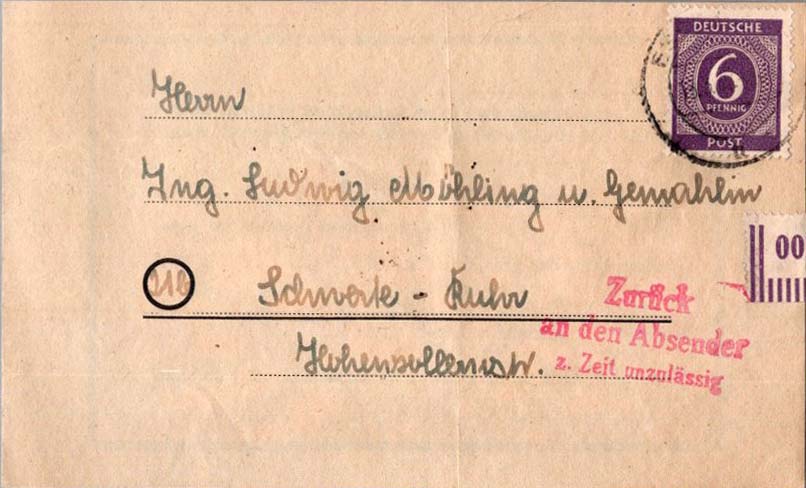 DEUTSCHE
6
PFENNIG
POST
Herrn
Ing. Ludwig Möhling u. Gemahlin
Schwerte - Ruhr
Hohenzollernstr.
00
Zurück
an den Absender
z. Zeit unzulässig